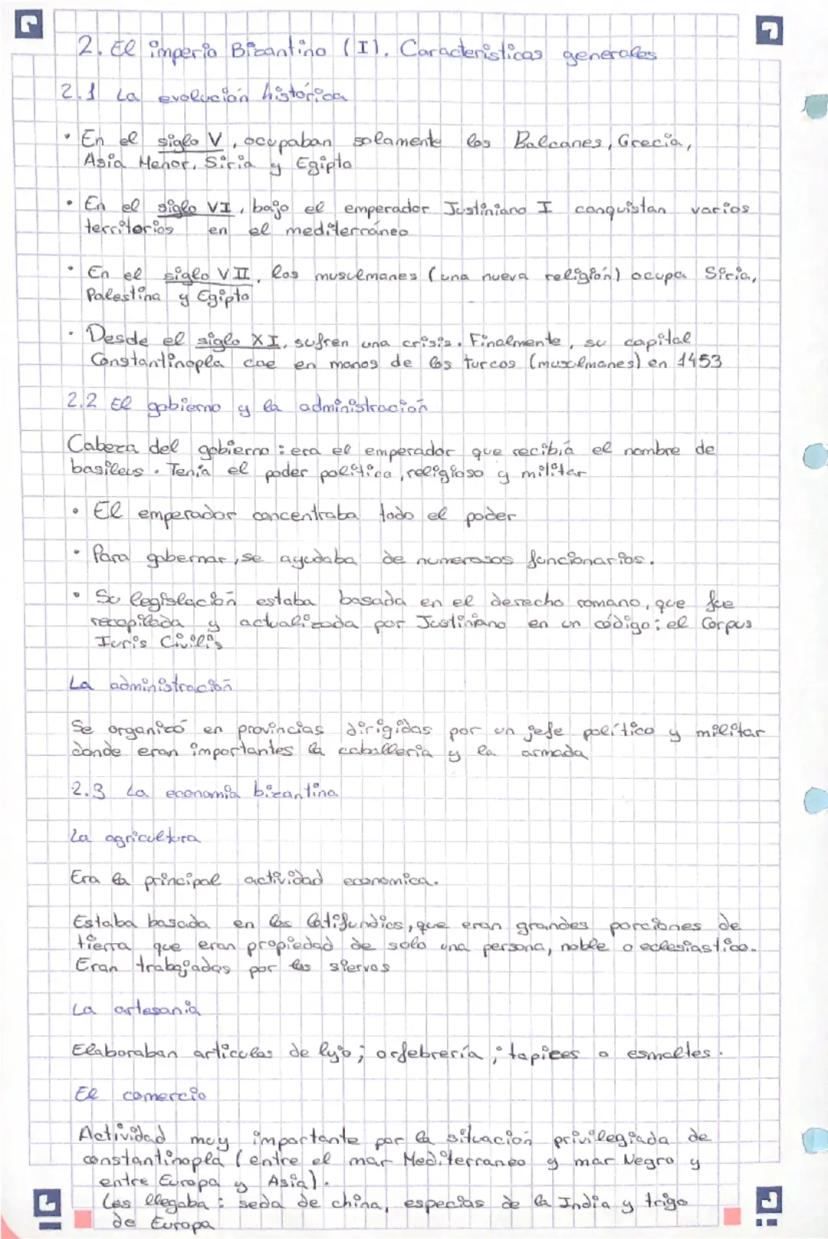 2. El imperio Bizantino (I). Caracteristicas generales
2.1 La evolución histórica
• En el siglo V, ocupaban solamente los Balcanes, Grecia,
Asia Menor, Siria y Egipto
• En el siglo VI, bajo el emperador Justiniano I conquistan varios
territorios en el mediterráneo
• En el siglo VII, los musulmanes (una nueva religión) ocupa Siria,
Palestina y Egipto
• Desde el siglo XI, sufren una crisis. Finalmente, su capital
Constantinopla cae en manos de los turcos (musulmanes) en 1453
2.2 El gobierno y la administración
Cabeza del gobierno: era el emperador que recibía el nombre de
basileus. Tenía el poder político, religioso y militar
• El emperador concentraba todo el poder
• Para gobernar, se ayudaba de numerosos funcionarios.
• Su legislación estaba basada en el derecho romano, que fue
recopilada y actualizada por Justiniano en un código: el Corpus
Iuris Civilis
La administración
Se organizó en provincias dirigidas por un jefe político y militar
donde eran importantes la caballeria y la armada
2.3 La economia bizantina
La agricultura
Era la principal actividad economica.
Estaba basada en los latifundios, que eran grandes porciones de
tierra que eran propiedad de solo una persona, noble o eclesiastico.
Eran trabajadas por los siervos
La artesania
Elaboraban articulos de lujo; orfebrería; tapices o esmaltes.
El comercio
Actividad muy importante por la situación privilegiada de
constantinopla (entre el mar Mediterraneo y mar Negro y
entre Europa y Asia).
Les llegaba: seda de china, especias de la India y trigo
de Europa